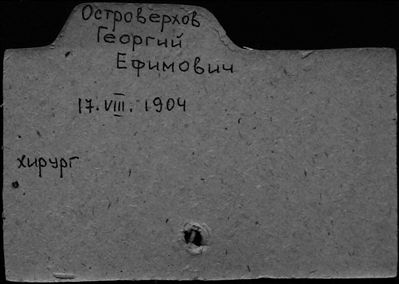 Островерхов
Георгий
Ефимович
17. VIII. 1904
хирург